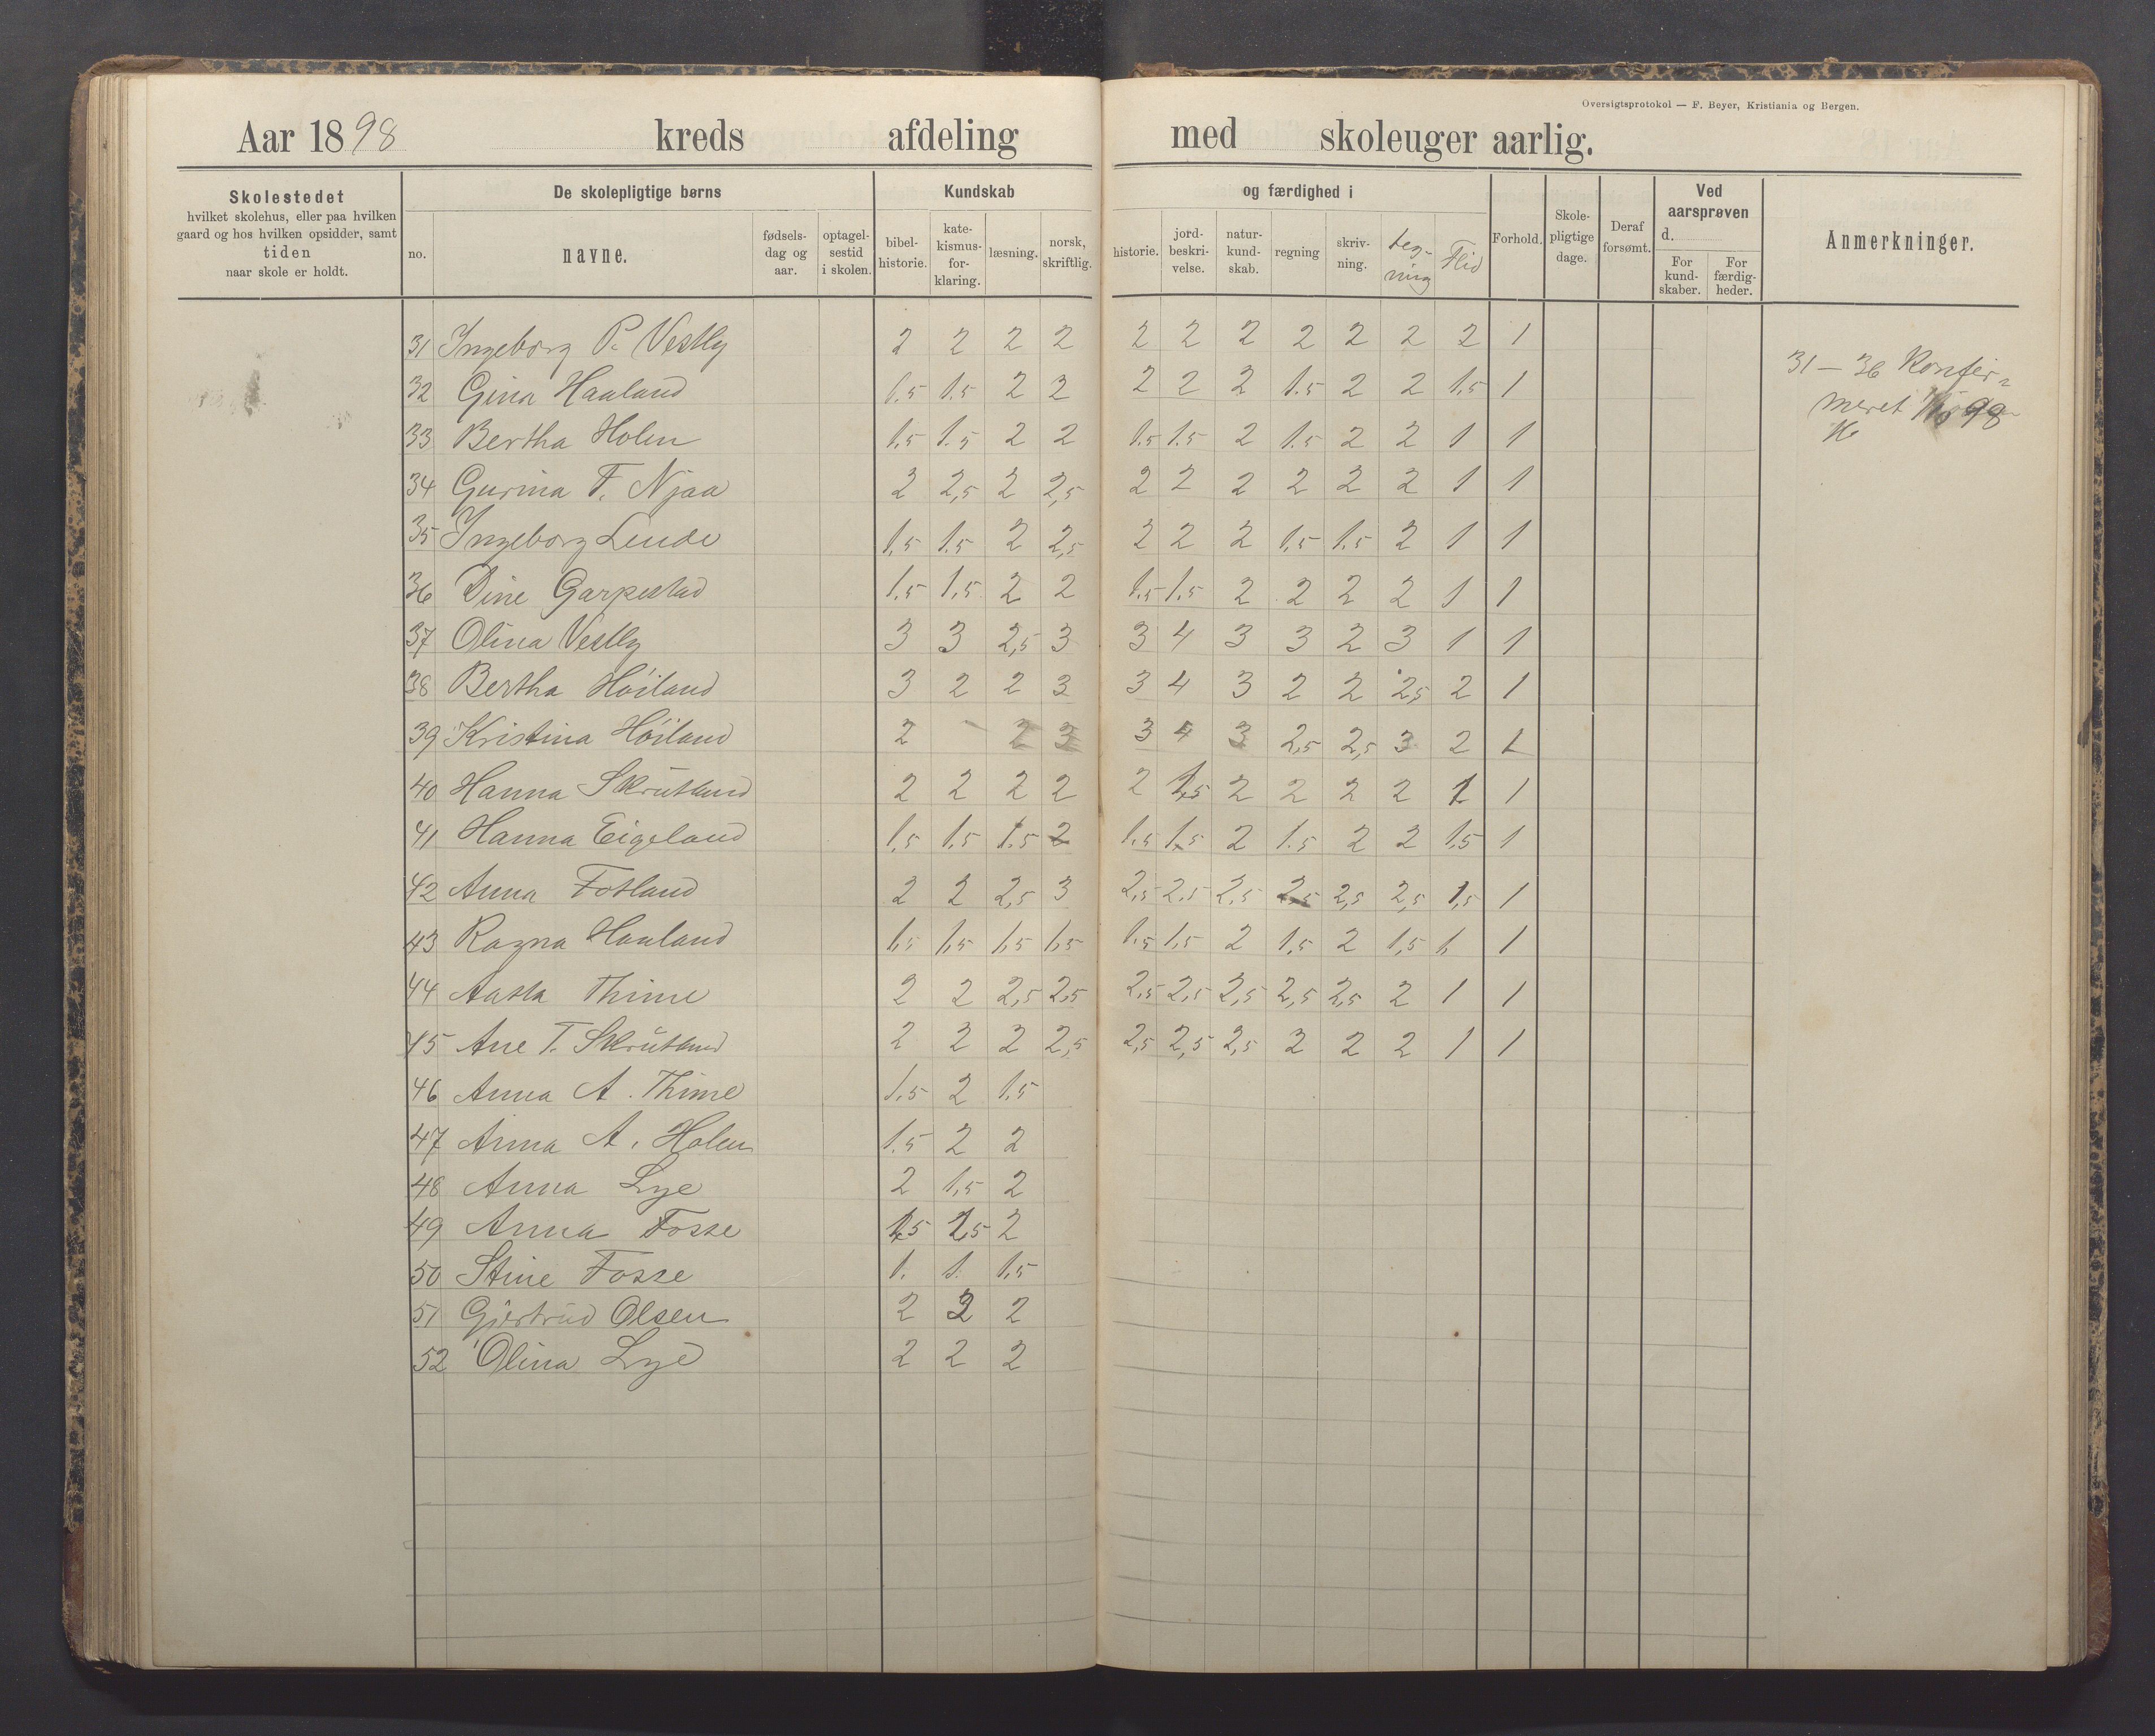 Oversigtsprotokol — F. Beyer, Kristiania og Bergen.
Aar 1898 kreds afdeling med skoleuger aarlig.
Skolestedet
hvilket skolehus, eller paa hvilken
gaard og hos hvilken opsidder, samt
tiden
naar skole er holdt.
De skolepligtige børns
no. navne. fødselsdag og aar. optagelsestid i skolen.
Kundskab
bibelhistorie. katekismusforklaring. læsning. norsk, skriftlig.
og færdighed i
historie. jordbeskrivelse. naturkundskab. regning skrivning. tegning Flid
Forhold. Skolepligtige dage. Deraf forsømt.
Ved aarsprøven d.
For kundskaber. For færdigheder.
Anmerkninger.
31 Ingeborg P. Vestly 2 2 2 2 2 2 2 2 2 2 2 1
32 Gina Haaland 1.5 1.5 2 2 2 2 2 1.5 2 2 1,5 1
33 Bertha Holen 1.5 1.5 2 2 1.5 1.5 2 1.5 2 2 1 1
34 Gurina T. Njaa 2 2,5 2 2,5 2 2 2 2 2 2 1 1
35 Ingeborg Lende 1,5 1.5 2 2,5 2 2 2 1,5 1.5 2 1 1
36 Dine Garpestad 1.5 1,5 2 2 1.5 1.5 2 2 2 2 1 1
37 Olina Vestly 3 3 2,5 3 3 4 3 3 2 3 1 1
38 Bertha Höiland 3 2 2 3 3 4 3 2 2 2,5 2 1
39 Kristina Höiland 2 2 3 3 4 3 2,5 2,5 3 2 1
40 Hanna Skrutland 2 2 2 2 2 1,5 2 2 2 2 1 1
41 Hanna Eigeland 1,5 1,5 1.5 2 1,5 1,5 2 1.5 2 2 1,5 1
42 Anna Fotland 2 2 2,5 3 2,5 2,5 2,5 2,5 2,5 2,5 1,5 1
43 Ragna Haaland 1,5 1,5 1,5 1,5 1,5 1,5 2 1,5 2 1,5 1, 1
44 Aasta Thime 2 2 2,5 2,5 2,5 2,5 2,5 2,5 2,5 2 1 1
45 Ane T. Skrutland 2 2 2 2,5 2,5 2,5 2,5 2 2 2 1 1
46 Anna A. Thime 1,5 2 1,5
47 Anna A. Holen 1.5 2 2
48 Anna Lye 2 1,5 2
49 Anna Fosse 1,5 1,5 2
50 Stine Fosse 1. 1. 1,5
51 Gjertrud Olsen 2 2 2
52 Olina Lye 2 2 2
31 – 36 Konfir-
meret 98